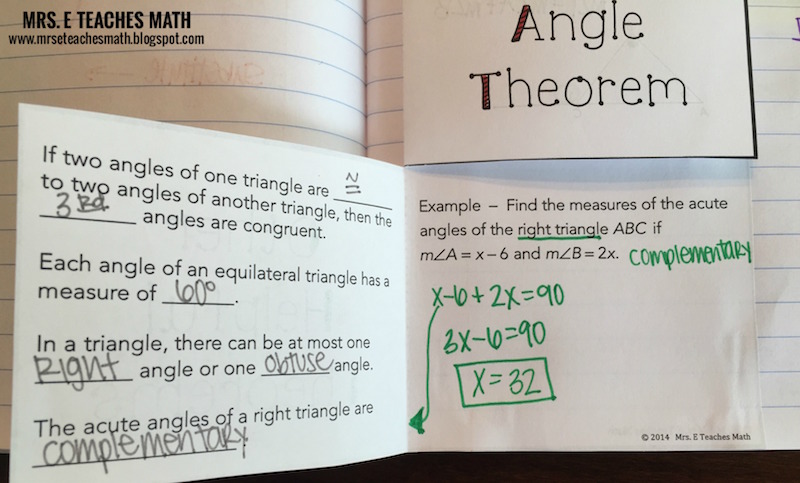 MRS. E TEACHES MATH
www.mrseteachesmath.blogspot.com
Angle
Theorem
If two angles of one triangle are ≅
to two angles of another triangle, then the
3rd angles are congruent.
Each angle of an equilateral triangle has a
measure of 60°.
In a triangle, there can be at most one
Right angle or one obtuse angle.
The acute angles of a right triangle are
complementary.
Example – Find the measures of the acute
angles of the right triangle ABC if
m∠A = x – 6 and m∠B = 2x. complementary
x-6+2x=90
3x-6=90
x=32
© 2014 Mrs. E Teaches Math